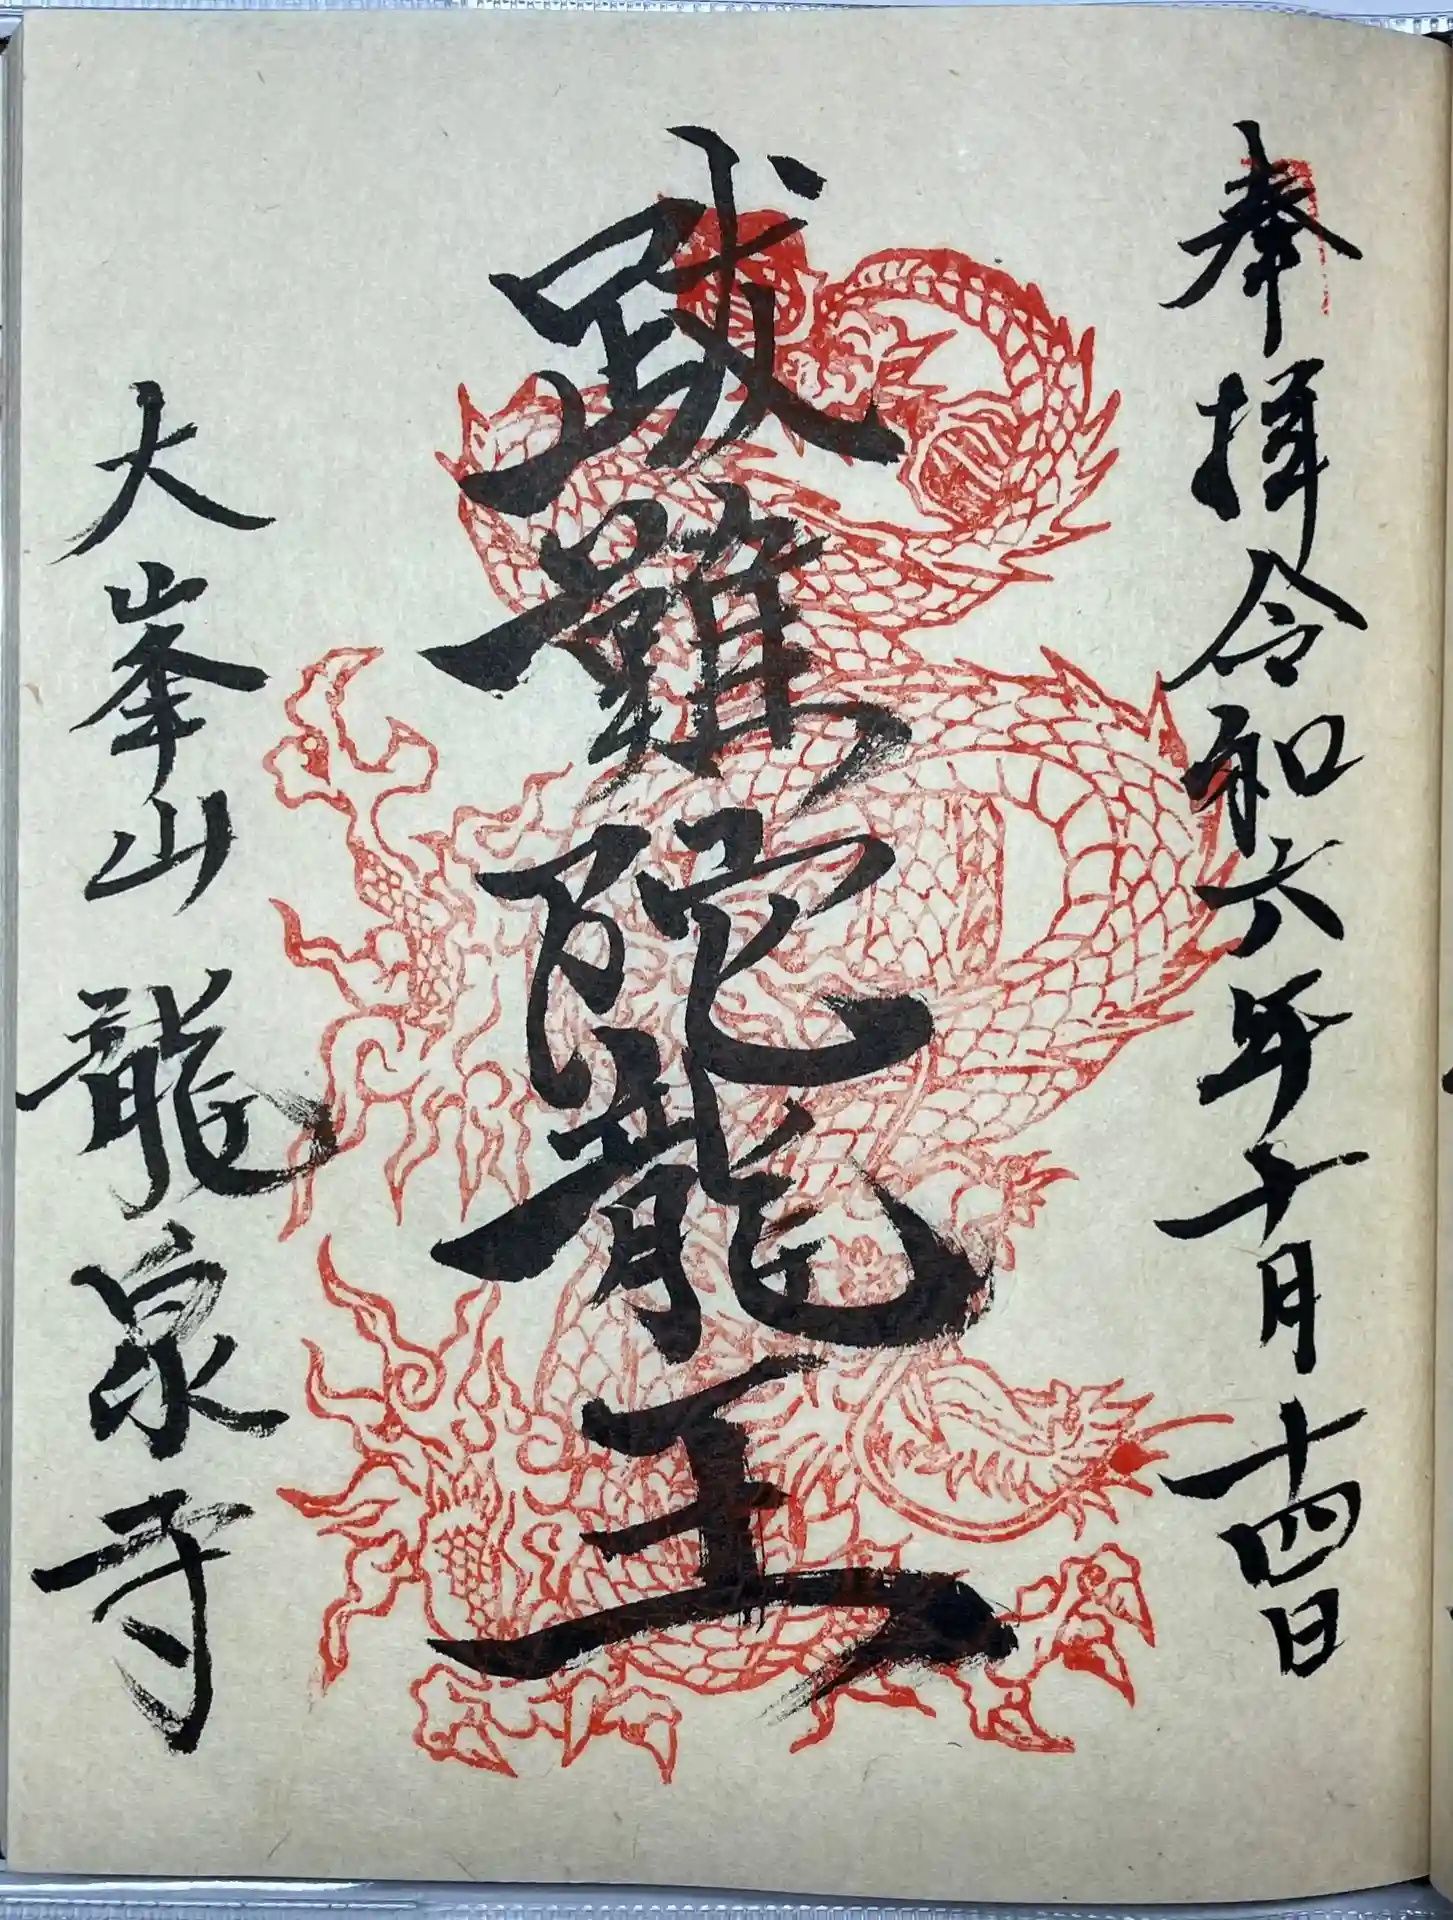 奉拝令和六年十月十四日
跋難陀龍王
大峯山 龍泉寺